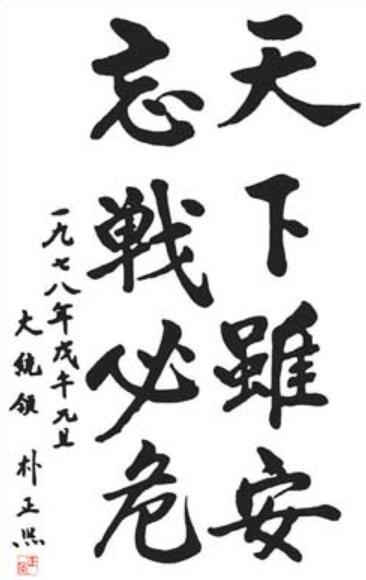 天下雖安
忘战必危
一九七八年戊午元旦
大統領 朴正熙